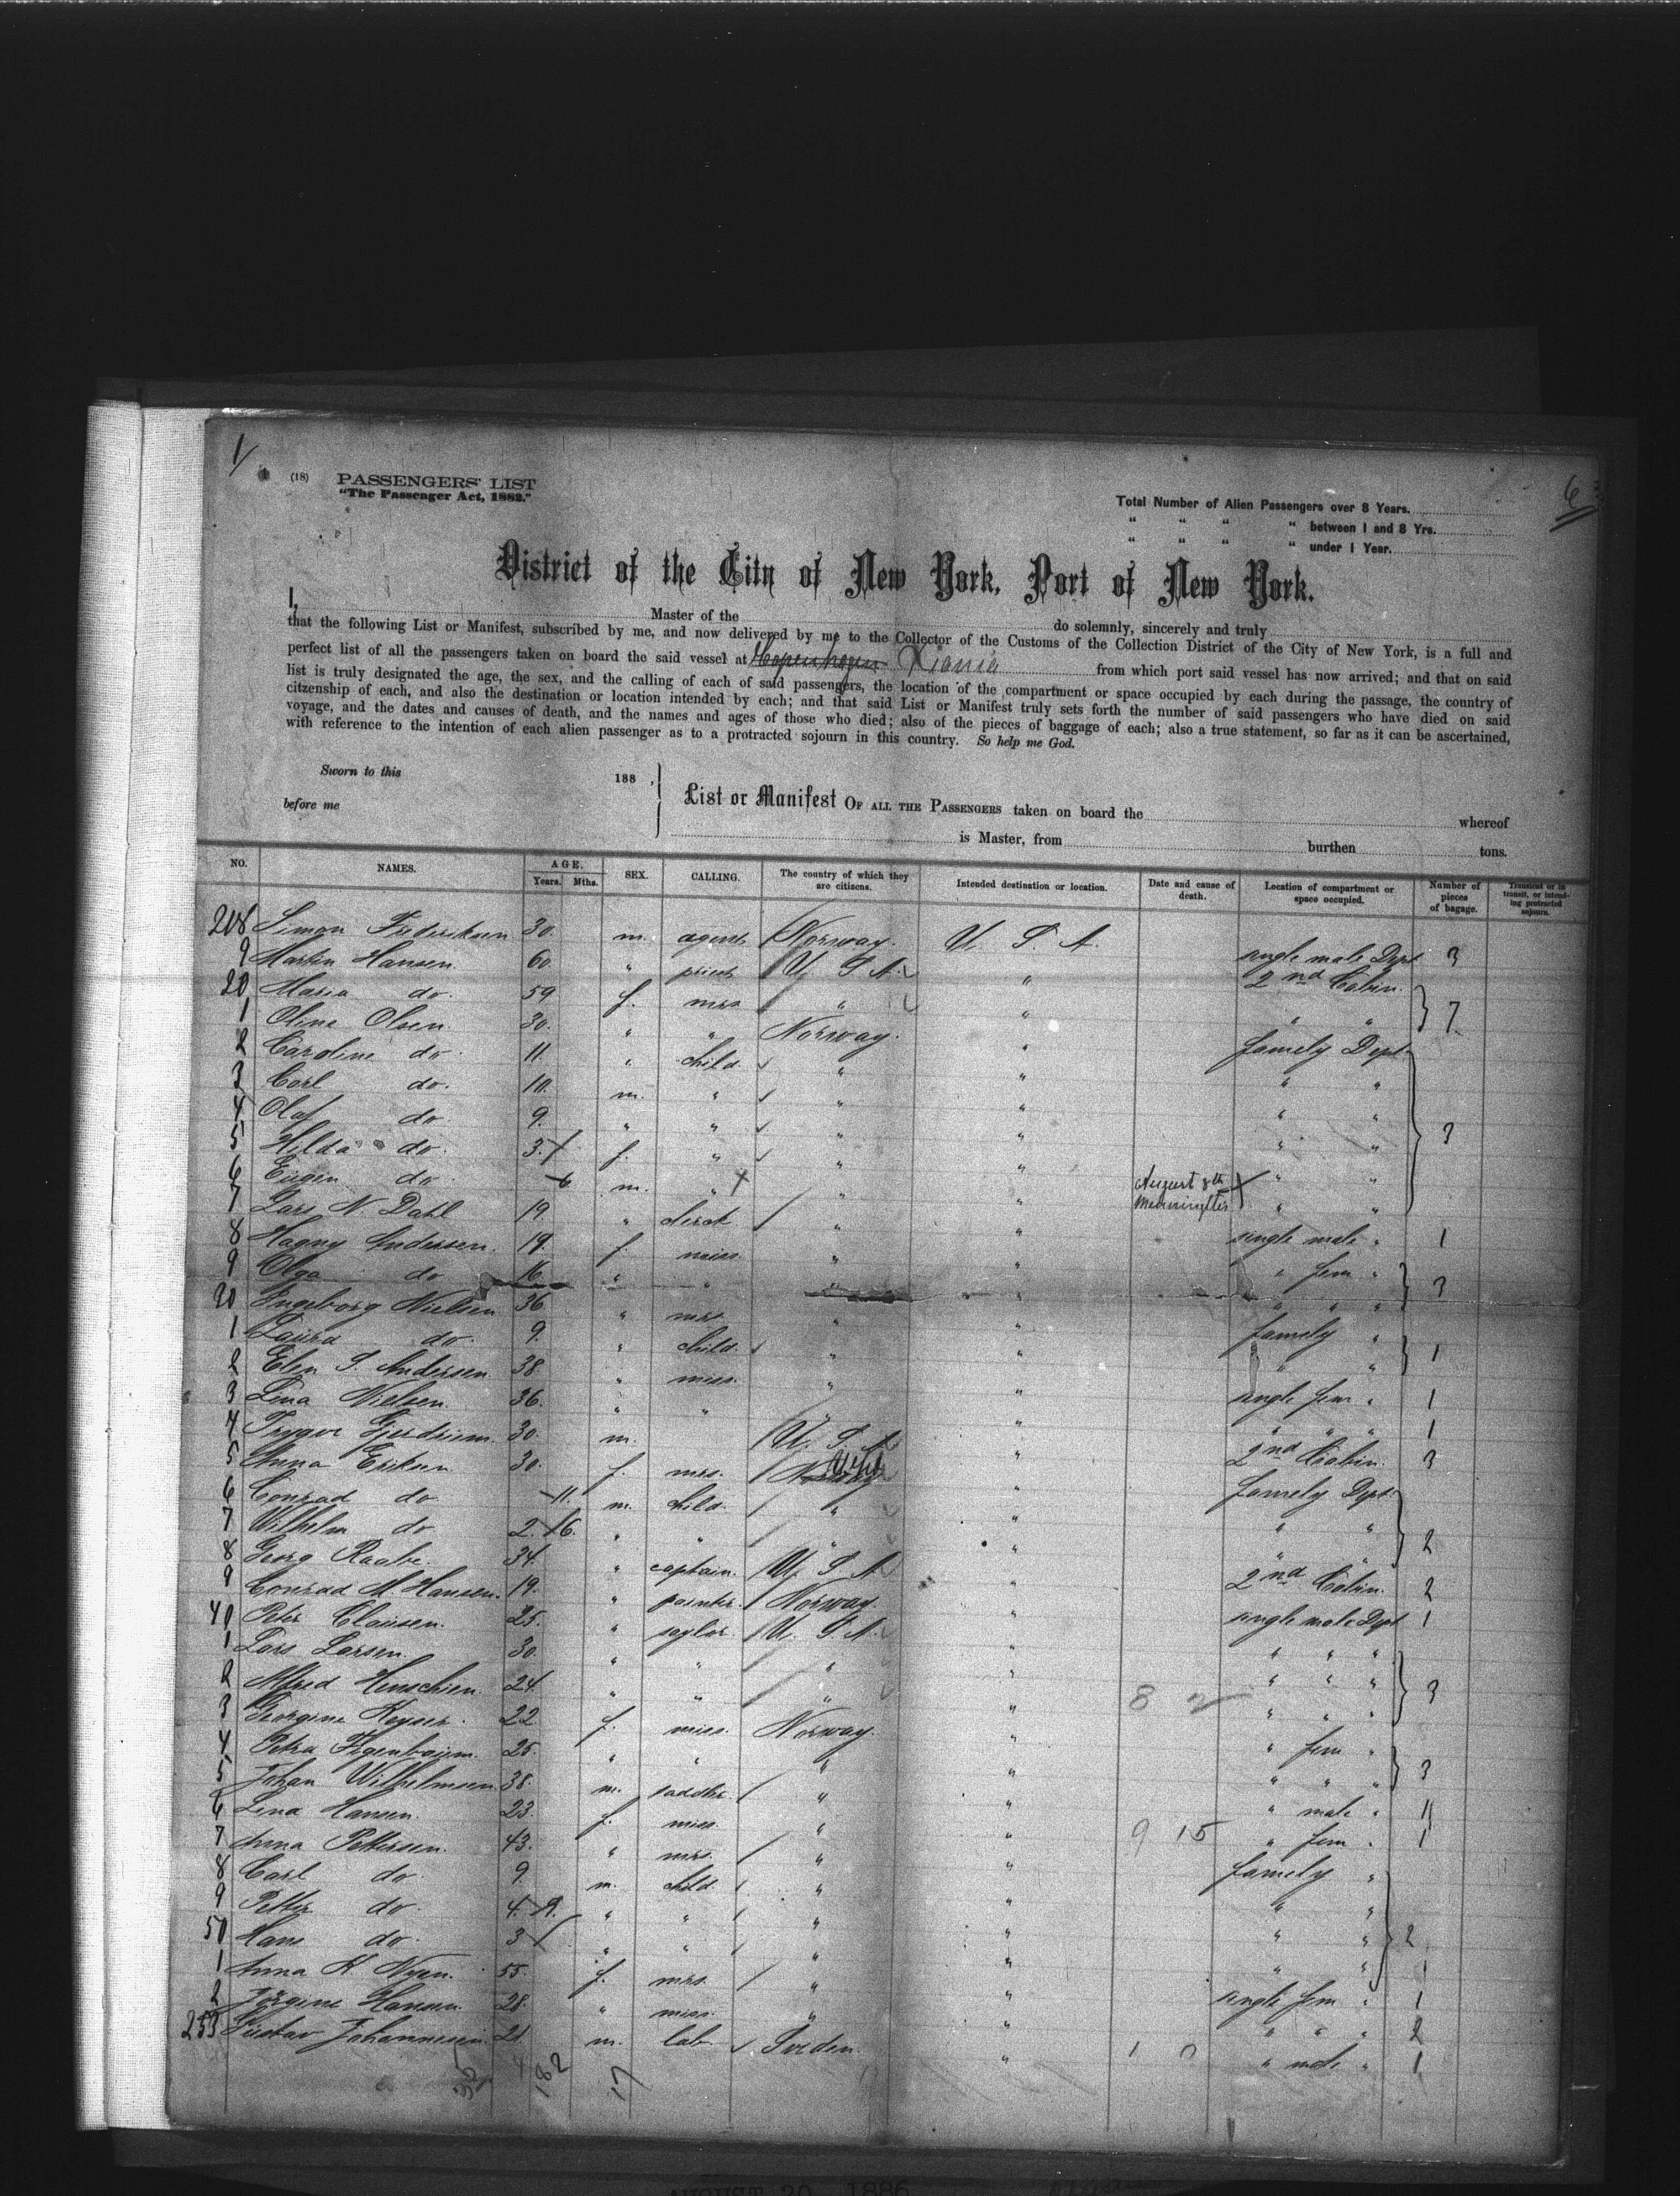 1/
6
(18) PASSENGERS' LIST
"The Passenger Act, 1882."
Total Number of Alien Passengers over 8 Years.
" " " " between 1 and 8 Yrs.
" " " " under 1 Year.
District of the City of New York, Port of New York.
I, Master of the do solemnly, sincerely and truly
that the following List or Manifest, subscribed by me, and now delivered by me to the Collector of the Customs of the Collection District of the City of New York, is a full and
perfect list of all the passengers taken on board the said vessel at Copenhagen Xiania from which port said vessel has now arrived; and that on said
list is truly designated the age, the sex, and the calling of each of said passengers, the location of the compartment or space occupied by each during the passage, the country of
citzenship of each, and also the destination or location intended by each; and that said List or Manifest truly sets forth the number of said passengers who have died on said
voyage, and the dates and causes of death, and the names and ages of those who died; also of the pieces of baggage of each; also a true statement, so far as it can be ascertained,
with reference to the intention of each alien passenger as to a protracted sojourn in this country. So help me God.
Sworn to this 188 ,
before me
List or Manifest OF ALL THE PASSENGERS taken on board the whereof
is Master, from burthen tons.
NO. NAMES. AGE. Years. Mths. SEX. CALLING. The country of which they are citizens. Intended destination or location. Date and cause of death. Location of compartment or space occupied. Number of pieces of bagage. Transient or in transit, or intending protracted sojourn.
218 Simon Frederiksen 30. m. agent Norway. U. S. A. single male Dept 3
9 Martin Hansen. 60 " priest U. S. A. " 2nd Cabin.
20 Maria do. 59 f. mrs " " " " 7
1 Oline Olsen. 30. " " Norway. " famely Dept
2 Caroline do. 11. " child " " " "
3 Carl do. 10. m. " " " " "
4 Olaf do. 9. " " " " " " 3
5 Hilda do. 3. f. " " " " "
6 Eugen do. 6 m. " " " August 8th " "
7 Lars N. Dahl 19 " clerck " " single male " 1
8 Hagny Andersen. 19. f. miss. " " " fem "
9 Olga do 16 " " " " " " " 3
30 Ingeborg Nielsen 36. " mrs. " " famely "
1 Laura do. 9. " child. " " " " 1
2 Elen S. Andersen. 38. " miss. " " single fem " 1
3 Lina Nielsen. 36. " " " " " " " 1
4 Trygve 30. m. U. S. A. " 2nd Cabin. 3
5 Anna Eriksen 30. f. mrs. Norway " famely Dept.
6 Conrad do. 11. m. child. " " " "
7 Wilhelm do 2. 6. " " " " " " 2
8 Georg Raabe. 34. " captain. U. S. A. " 2nd Cabin. 2
9 Conrad M. Hansen. 19. " painter. Norway. " single male Dept 1
40 Peter Clausen. 25. " saylor U. S. A. " " " "
1 Lars Larsen. 30. " " " " " " " 3
2 Alfred Henschien. 24. " " " " " " "
3 Georgine Keyser. 22. f. miss. Norway. " " fem "
4 Petra 25. " " " " " " " 3
5 Johan Wilhelmsen. 38. m. saddler. " " " male " 1
6 Lina Hansen. 23. f. miss. " " 9 15 " fem " 1
7 Anna Pettersen. 43. " mrs. " " famely "
8 Carl do 9. m. child. " " " "
9 Petter do. 4. 9. " " " " " " 2
50 Hans do. 3 " " " " " "
1 Anna K. Nyen. 55. f. mrs. " " single fem " 1
2 Jörgine Hansen. 28. " miss. " " " " " 2
253 Gustav Johannesen. 21. m. lab. Sveden. " " male " 1
8
182 17
AUGUST 20, 1886